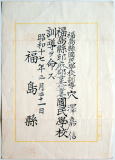 福島縣國民學校訓導 穴澤嘉信
福島縣 國民學校
訓導ヲ命ス
昭和十七年三月三十一日
福島縣